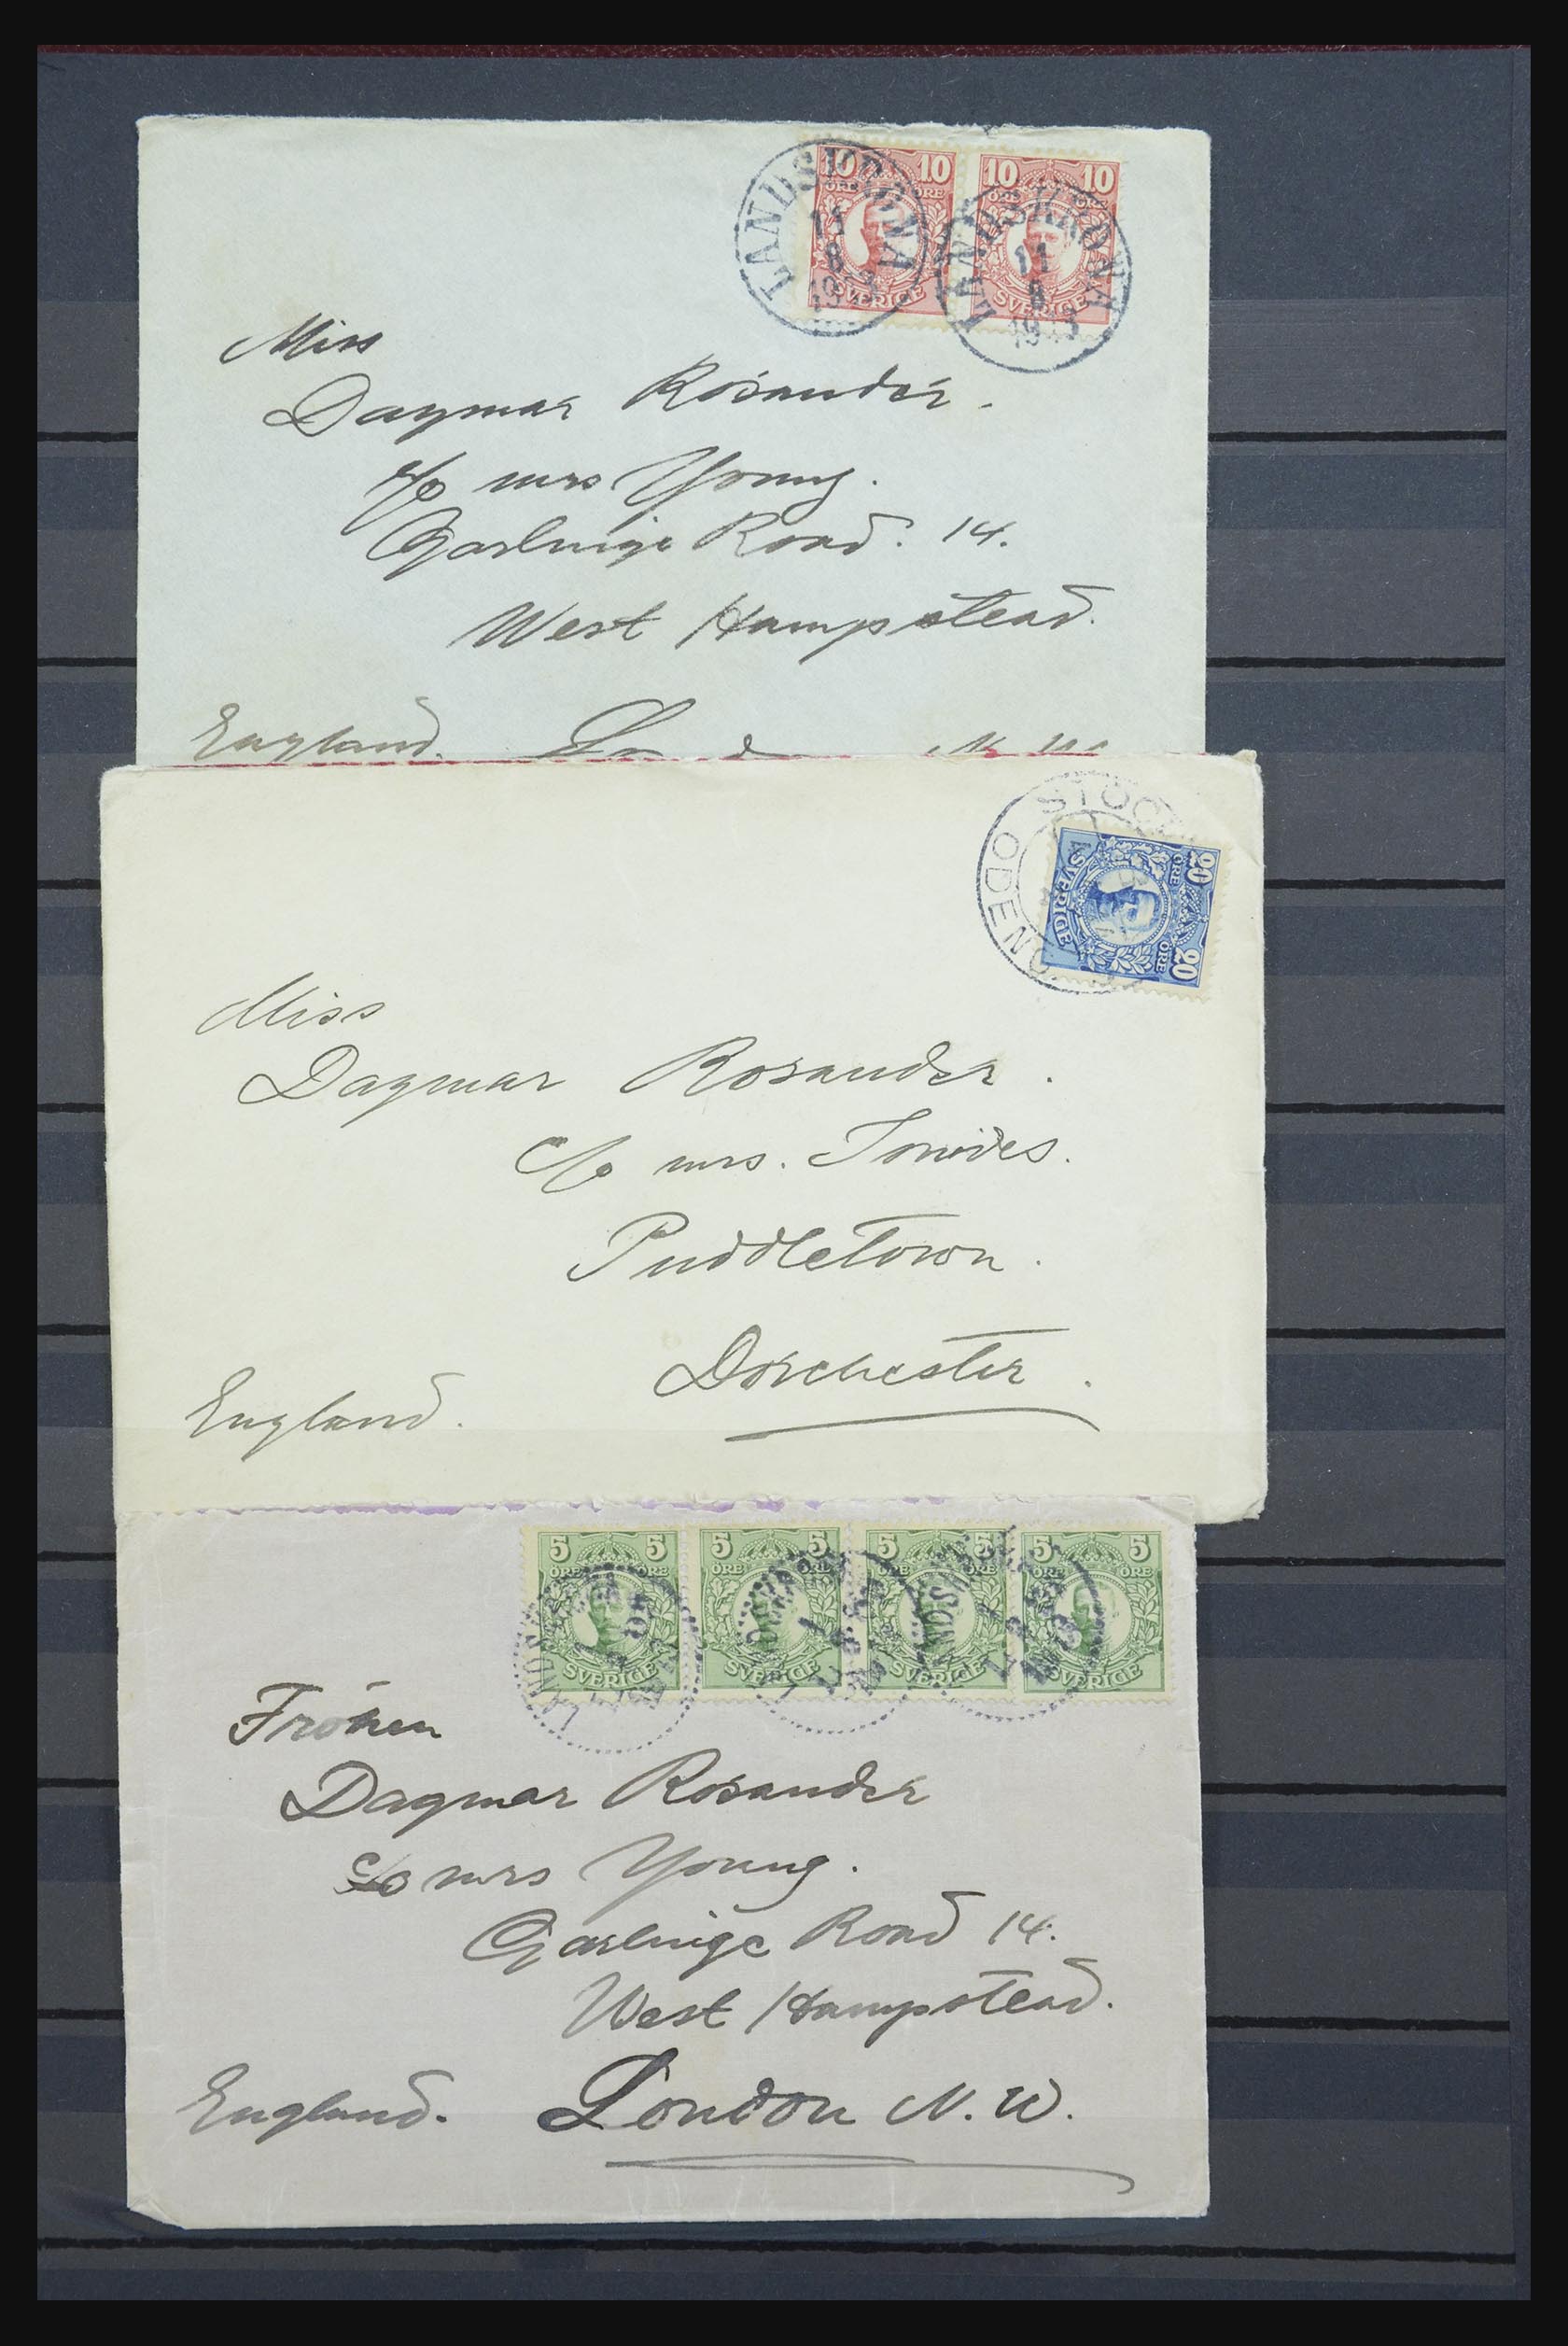 10 10 10 10
ÖRE ÖRE ÖRE ÖRE
LANDSKRONA LANDSKRONA
11 11
8 8
SVERIGE SVERIGE
Miss
Dagmar Rosander.
c/o mrs Young.
Garlinge Road. 14.
West Hampstead.
England.
20 ÖRE ÖRE 20
SVERIGE
ODEN
Miss
Dagmar Rosander.
c/o mrs. Ionides.
Puddletown.
Dorchester.
England.
5 5 5 5 5 5 5 5
ÖRE ÖRE ÖRE ÖRE ÖRE ÖRE ÖRE ÖRE
SVERIGE SVERIGE SVERIGE SVERIGE
Fröken
Dagmar Rosander
c/o mrs Young.
Garlinge Road 14.
West Hampstead.
England. London N.W.